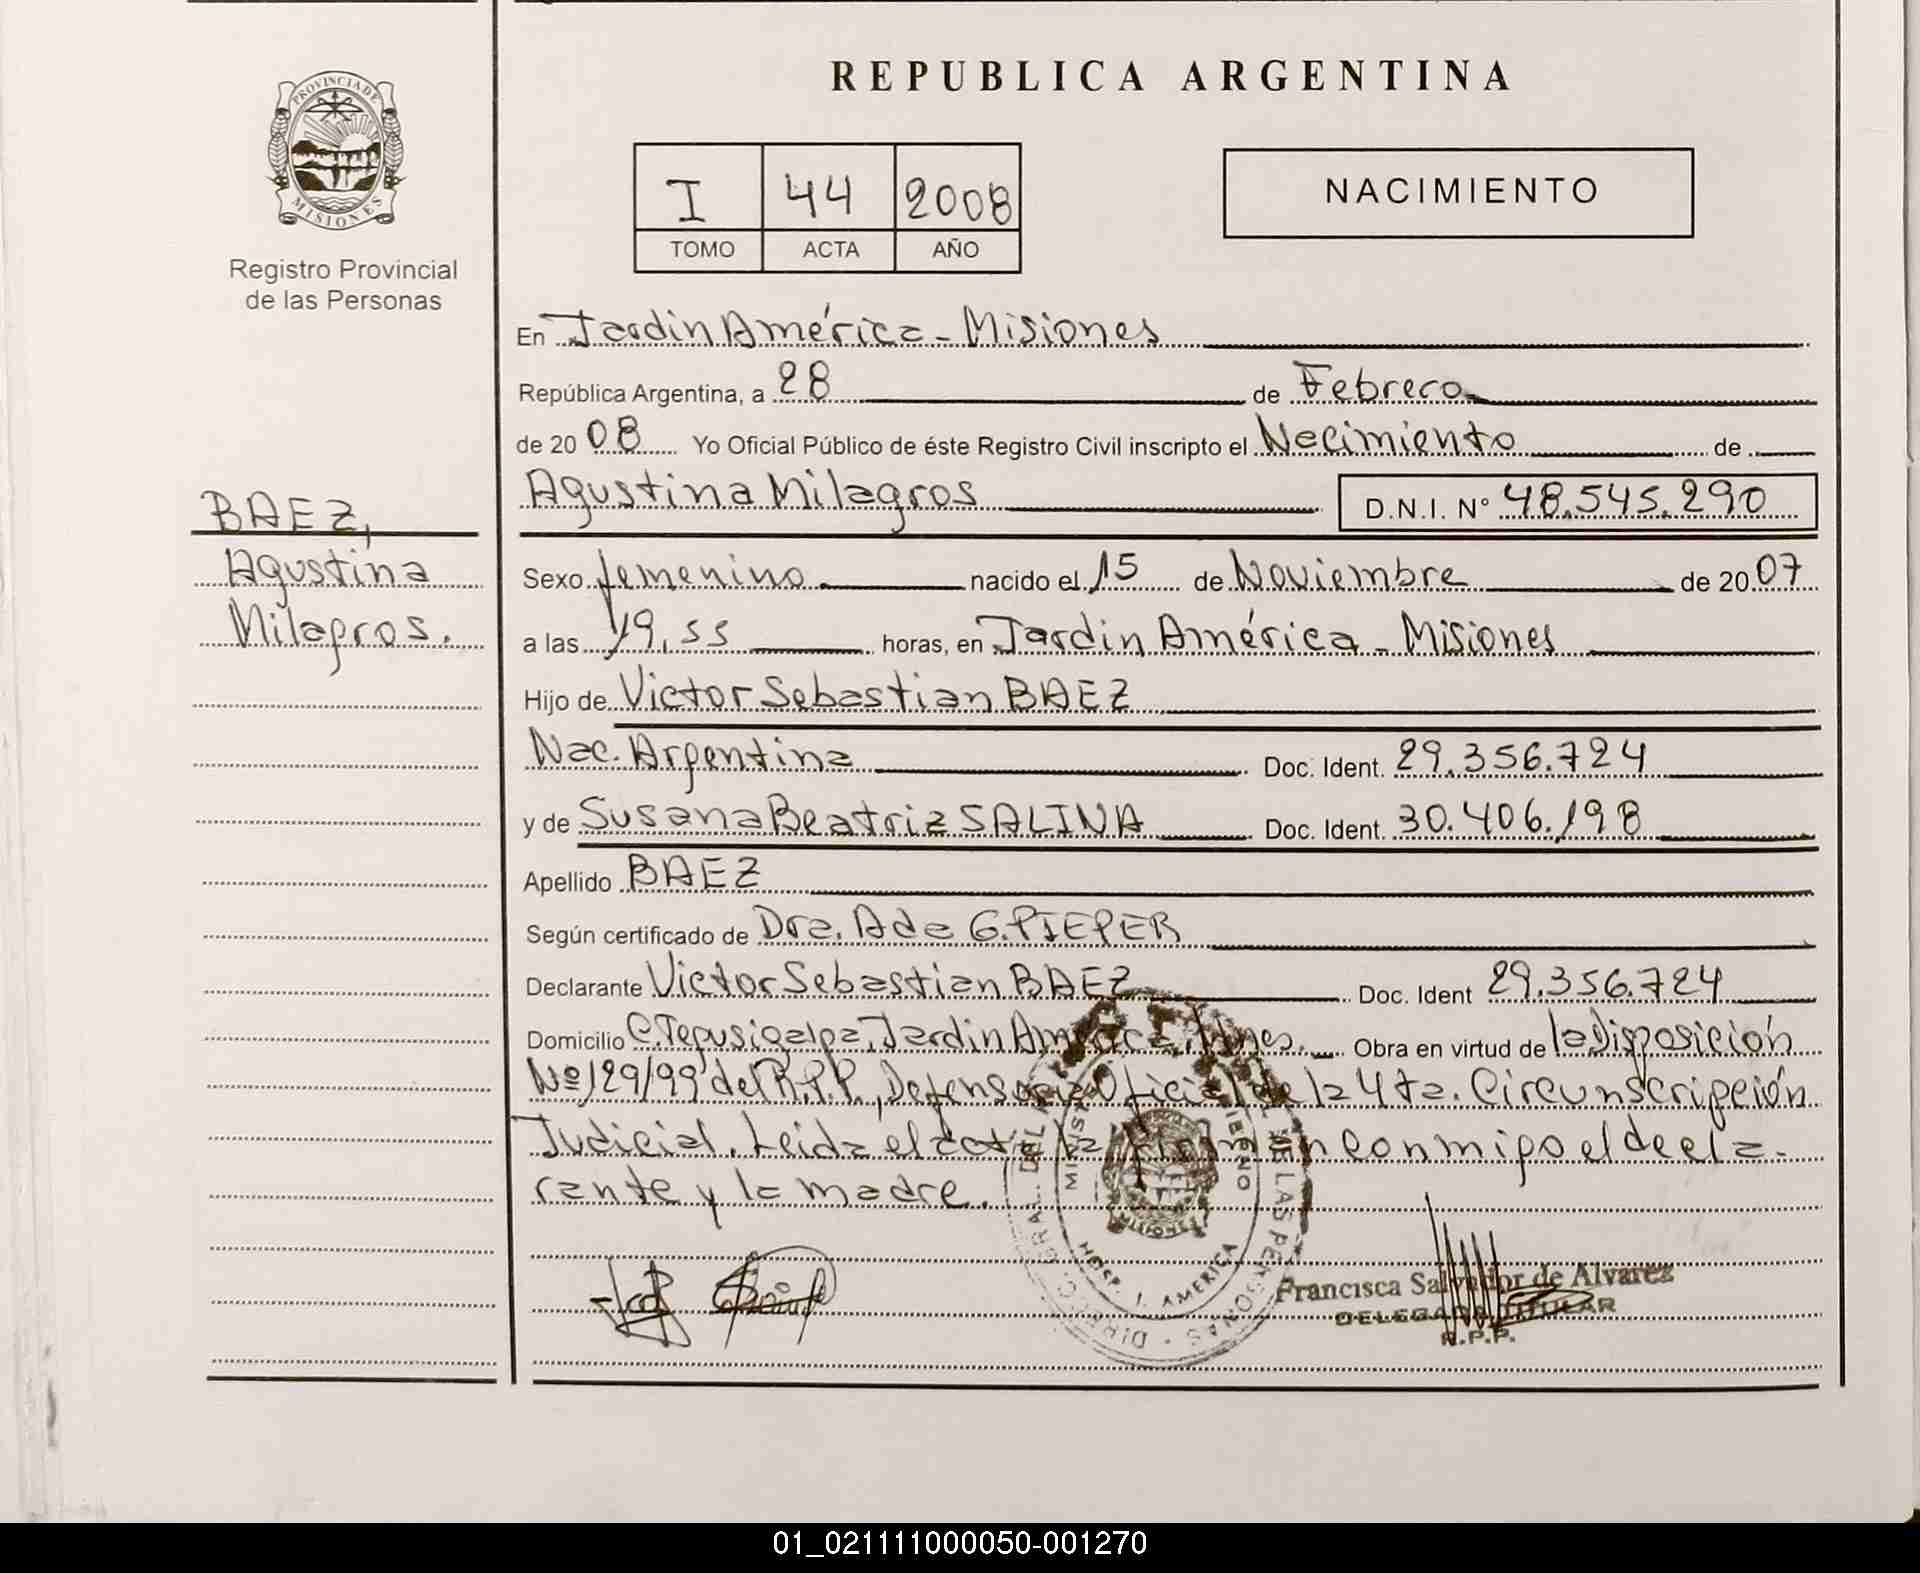 REPUBLICA ARGENTINA
PROVINCIA DE
MISIONES
Registro Provincial
de las Personas
I 44 2008
TOMO ACTA AÑO
NACIMIENTO
En Jardin América - Misiones
República Argentina, a 28 de Febrero
de 2008 Yo Oficial Público de éste Registro Civil inscripto el Nacimiento de
Agustina Milagros D.N.I. N° 48.545.290
BAEZ,
Agustina
Milagros.
Sexo femenino nacido el 15 de Noviembre de 2007
a las 19,55 horas, en Jardin América - Misiones
Hijo de Victor Sebastian BAEZ
Nac. Argentina Doc. Ident. 29.356.724
y de Susana Beatriz SALINA Doc. Ident. 30.406.198
Apellido BAEZ
Según certificado de Dra. Ada G. PIEPER
Declarante Victor Sebastian BAEZ Doc. Ident 29.356.724
Domicilio C. Tegusigalpa, Jardin América, Mnes. Obra en virtud de la Disposición
Nº 129/99 del R.P.P., Defensoria Oficial de la 4ta. Circunscripción
Judicial. Leida el acta la firman conmigo el decla-
rante y la madre.
HOSP. J. AMERICA
Francisca Salvador de Alvarez
DELEGADA TITULAR
R.P.P.
01_021111000050-001270